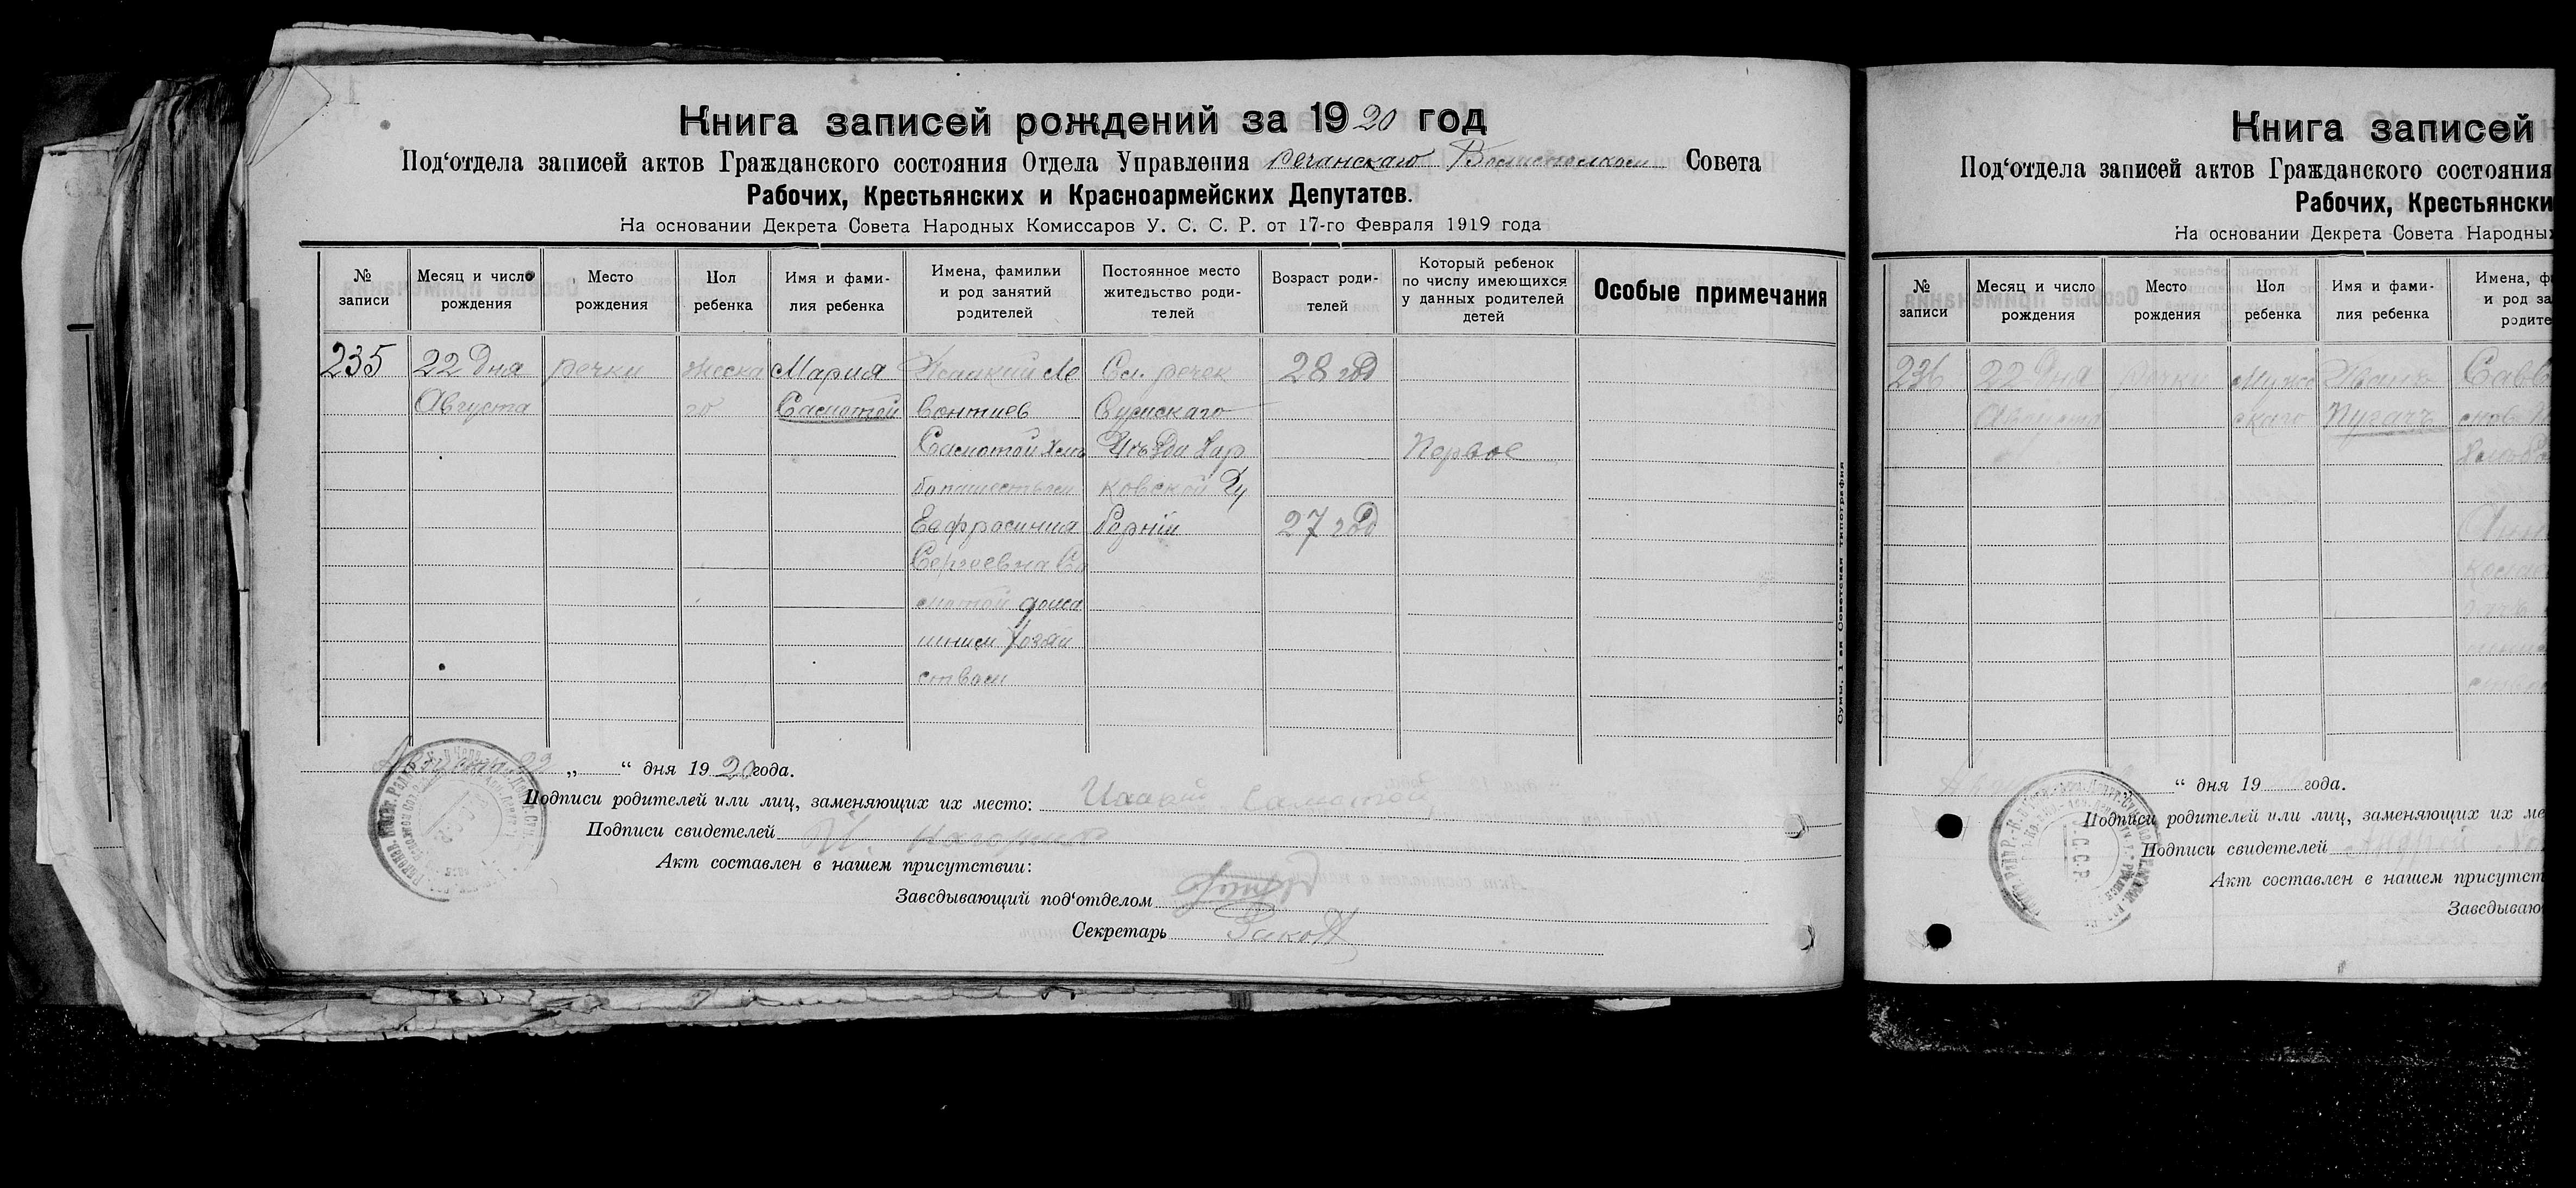 Книга записей рождений за 1920 год
Под‘отдела записей актов Гражданского состояния Отдела Управления Речанскаго Волисполком Совета
Рабочих, Крестьянских и Красноармейских Депутатов.
На основании Декрета Совета Народных Комиссаров У. С. С. Р. от 17-го Февраля 1919 года
№ записи
Месяц и число рождения
Место рождения
Пол ребенка
Имя и фами-
лия ребенка
Имена, фамилии
и род занятий
родителей
Постоянное место
жительство роди-
телей
Возраст роди-
телей
Который ребенок
по числу имеющихся
у данных родителей
детей
Особые примечания
235
22 дня
Августа
речки
женска
го
Мария
Самотой
Исаакий Ле
вонтиев
Самотой хле
бопашеством
Евфросиния
Сергеевна Са
мотой дома
шнием хозяй
ством
Сл. речек
Сумскаго
Уѣзда Хар
ковской Гу
бернии
28 год
27 год
Первое
Августа 22 „ “ дня 1920 года.
Подписи родителей или лиц, заменяющих их место: Исакий Самотой
Подписи свидетелей
Акт составлен в нашем присутствии:
Заведывающий под‘отделом
Секретарь
Сумы. 1-ая Советская типография
Книга записей
Под‘отдела записей актов Гражданского состояния
Рабочих, Крестьянски
На основании Декрета Совета Народны
№ записи
Месяц и число рождения
Место рождения
Пол ребенка
Имя и фами-
лия ребенка
Имена, ф
и род за
родите
236
22 дня
Августа
речки
Мужс
скаго
Иванъ
Пугачъ
Савв
“ дня 19 года.
Подписи родителей или лиц, заменяющих их ме
Подписи свидетелей Андрей
Акт составлен в нашем присутст
Заведываю